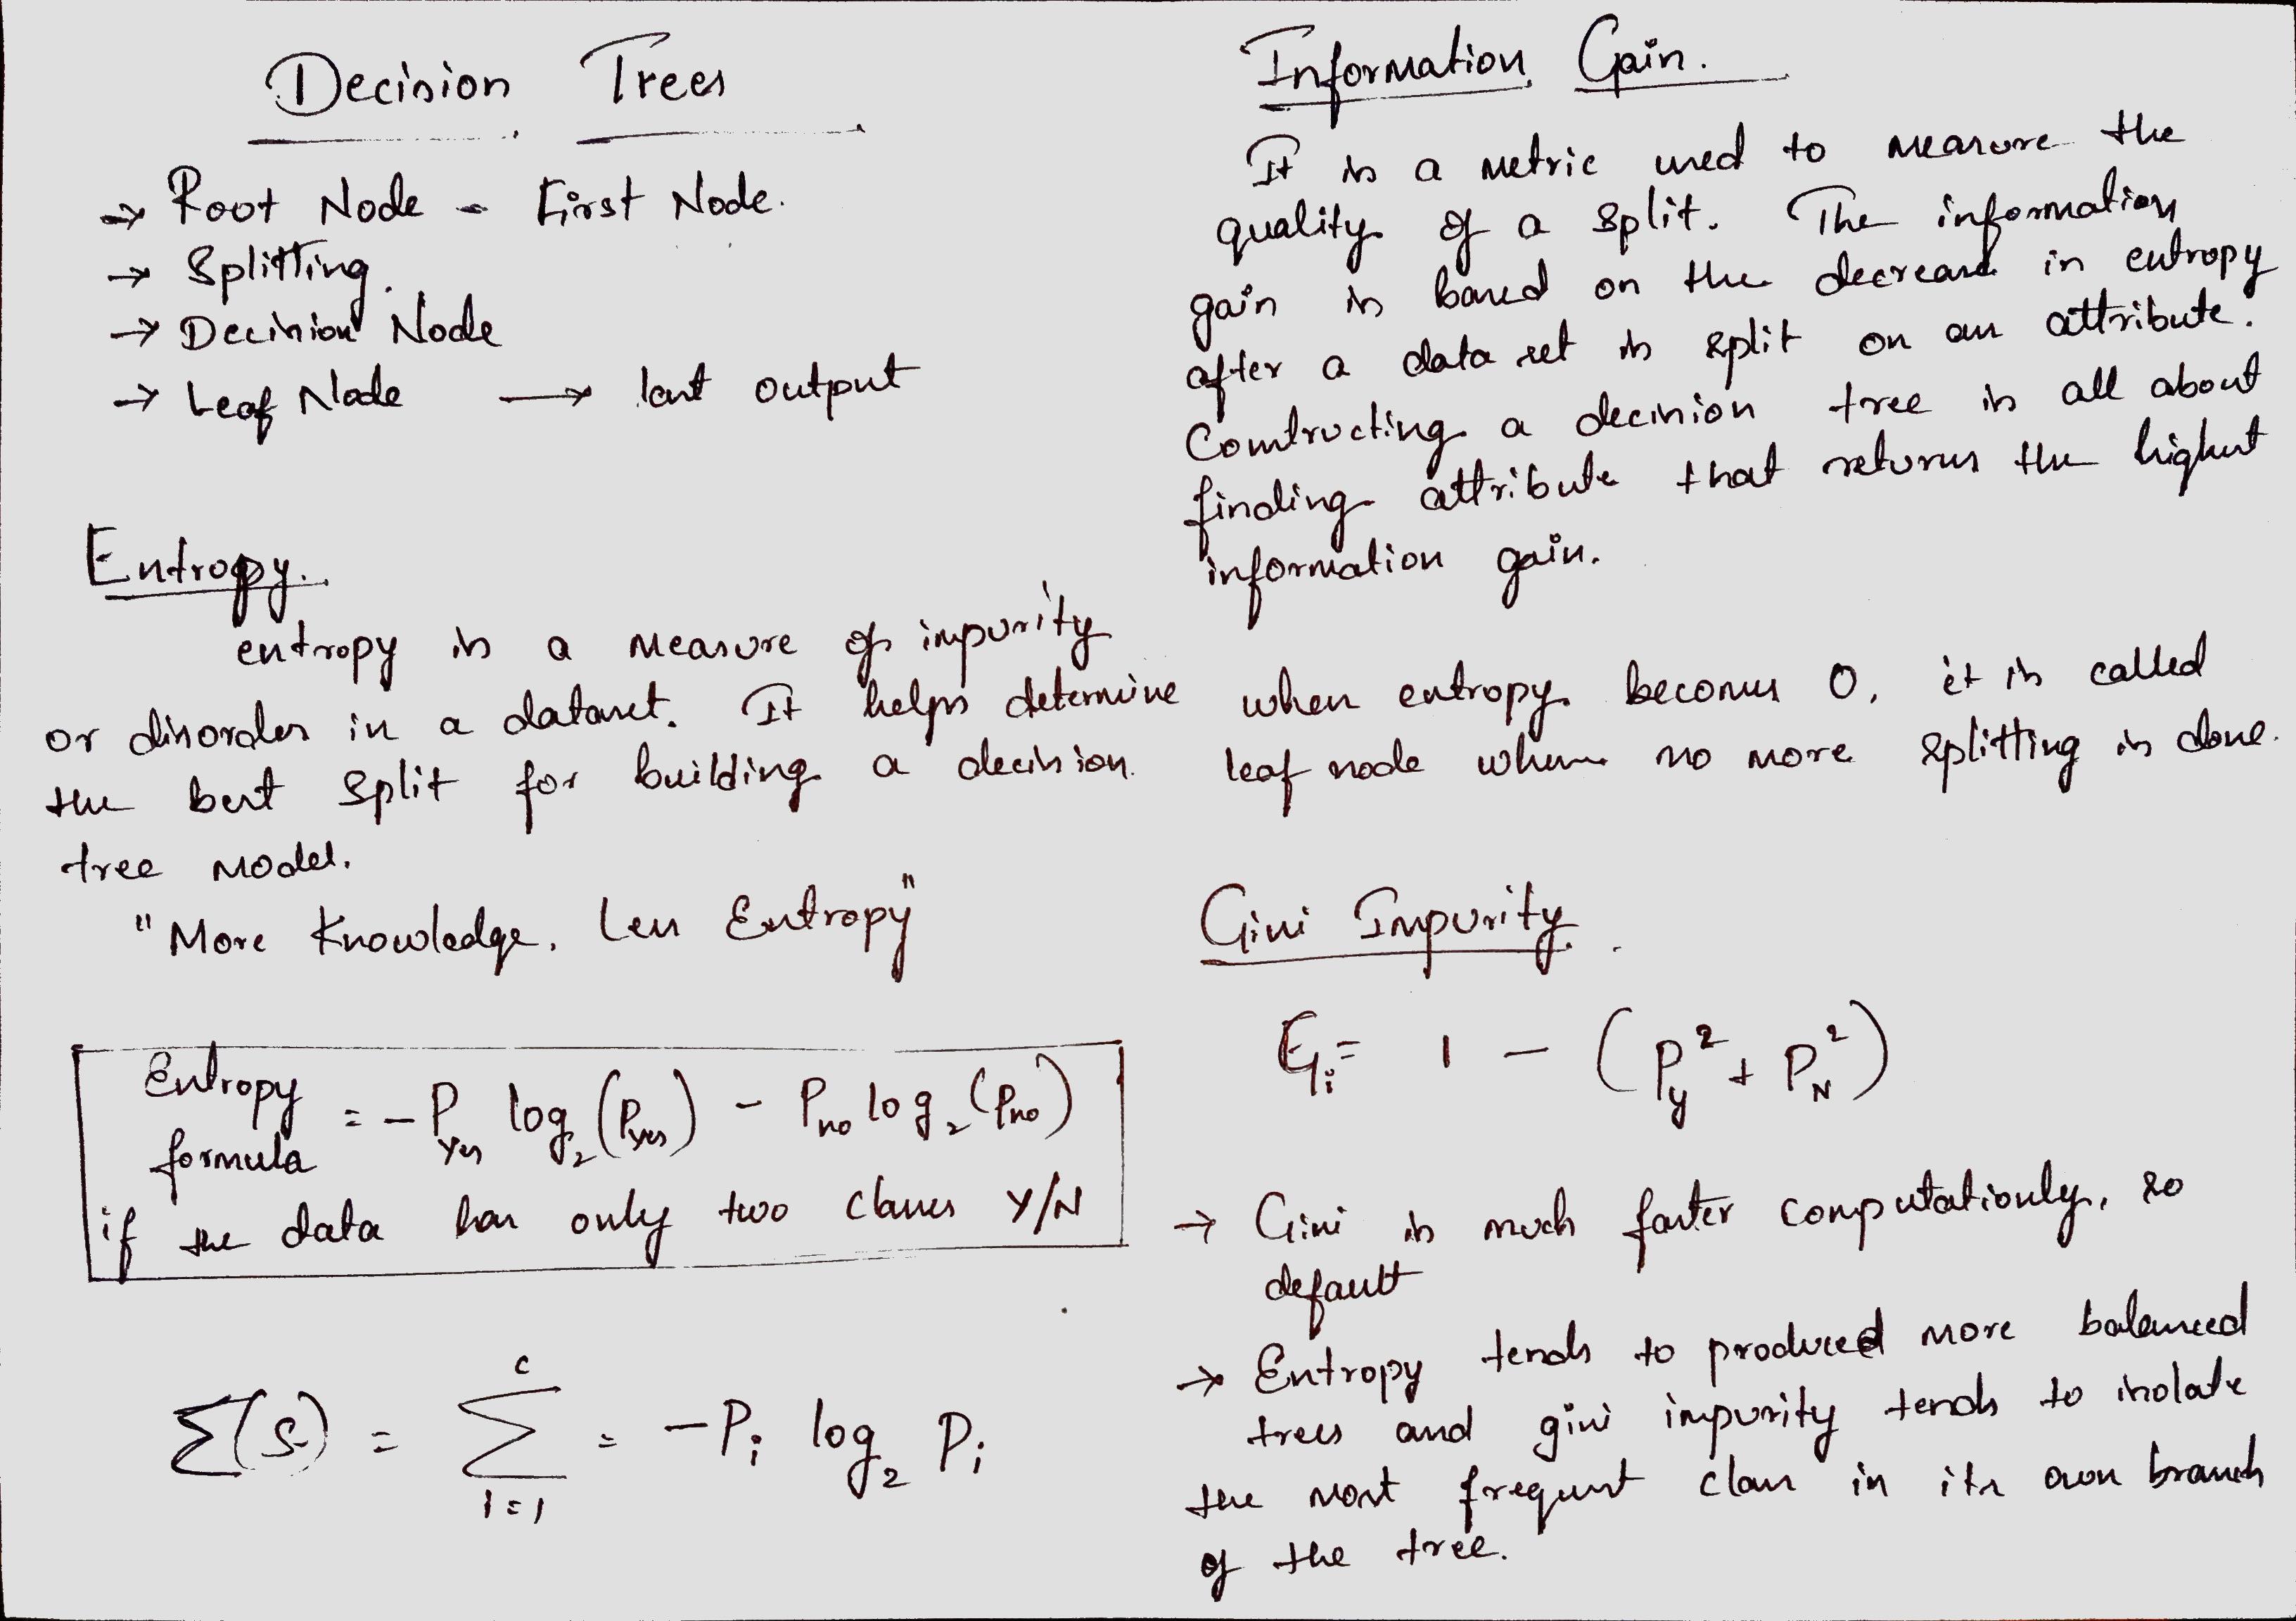 Decision Trees
→ Root Node - First Node.
→ Splitting.
→ Decision Node
→ Leaf Node → last output
Entropy.
entropy is a measure of impurity
or disorder in a dataset. It helps determine
the best split for building a decision
tree model.
"More Knowledge, Less Entropy"
Entropy
formula = -P_yes log₂(P_yes) - P_no log₂(P_no)
if the data has only two classes Y/N
c
Σ(S) = Σ = -Pᵢ log₂ Pᵢ
i=1
Information Gain.
It is a metric used to measure the
quality of a split. The information
gain is based on the decrease in entropy
after a data set is split on an attribute.
Constructing a decision tree is all about
finding attribute that returns the highest
information gain.
when entropy becomes 0, it is called
leaf node where no more splitting is done.
Gini Impurity.
Gᵢ = 1 - (P_y² + P_N²)
→ Gini is much faster computationly, so
default
→ Entropy tends to produced more balanced
trees and gini impurity tends to isolate
the most frequent class in its own branch
of the tree.